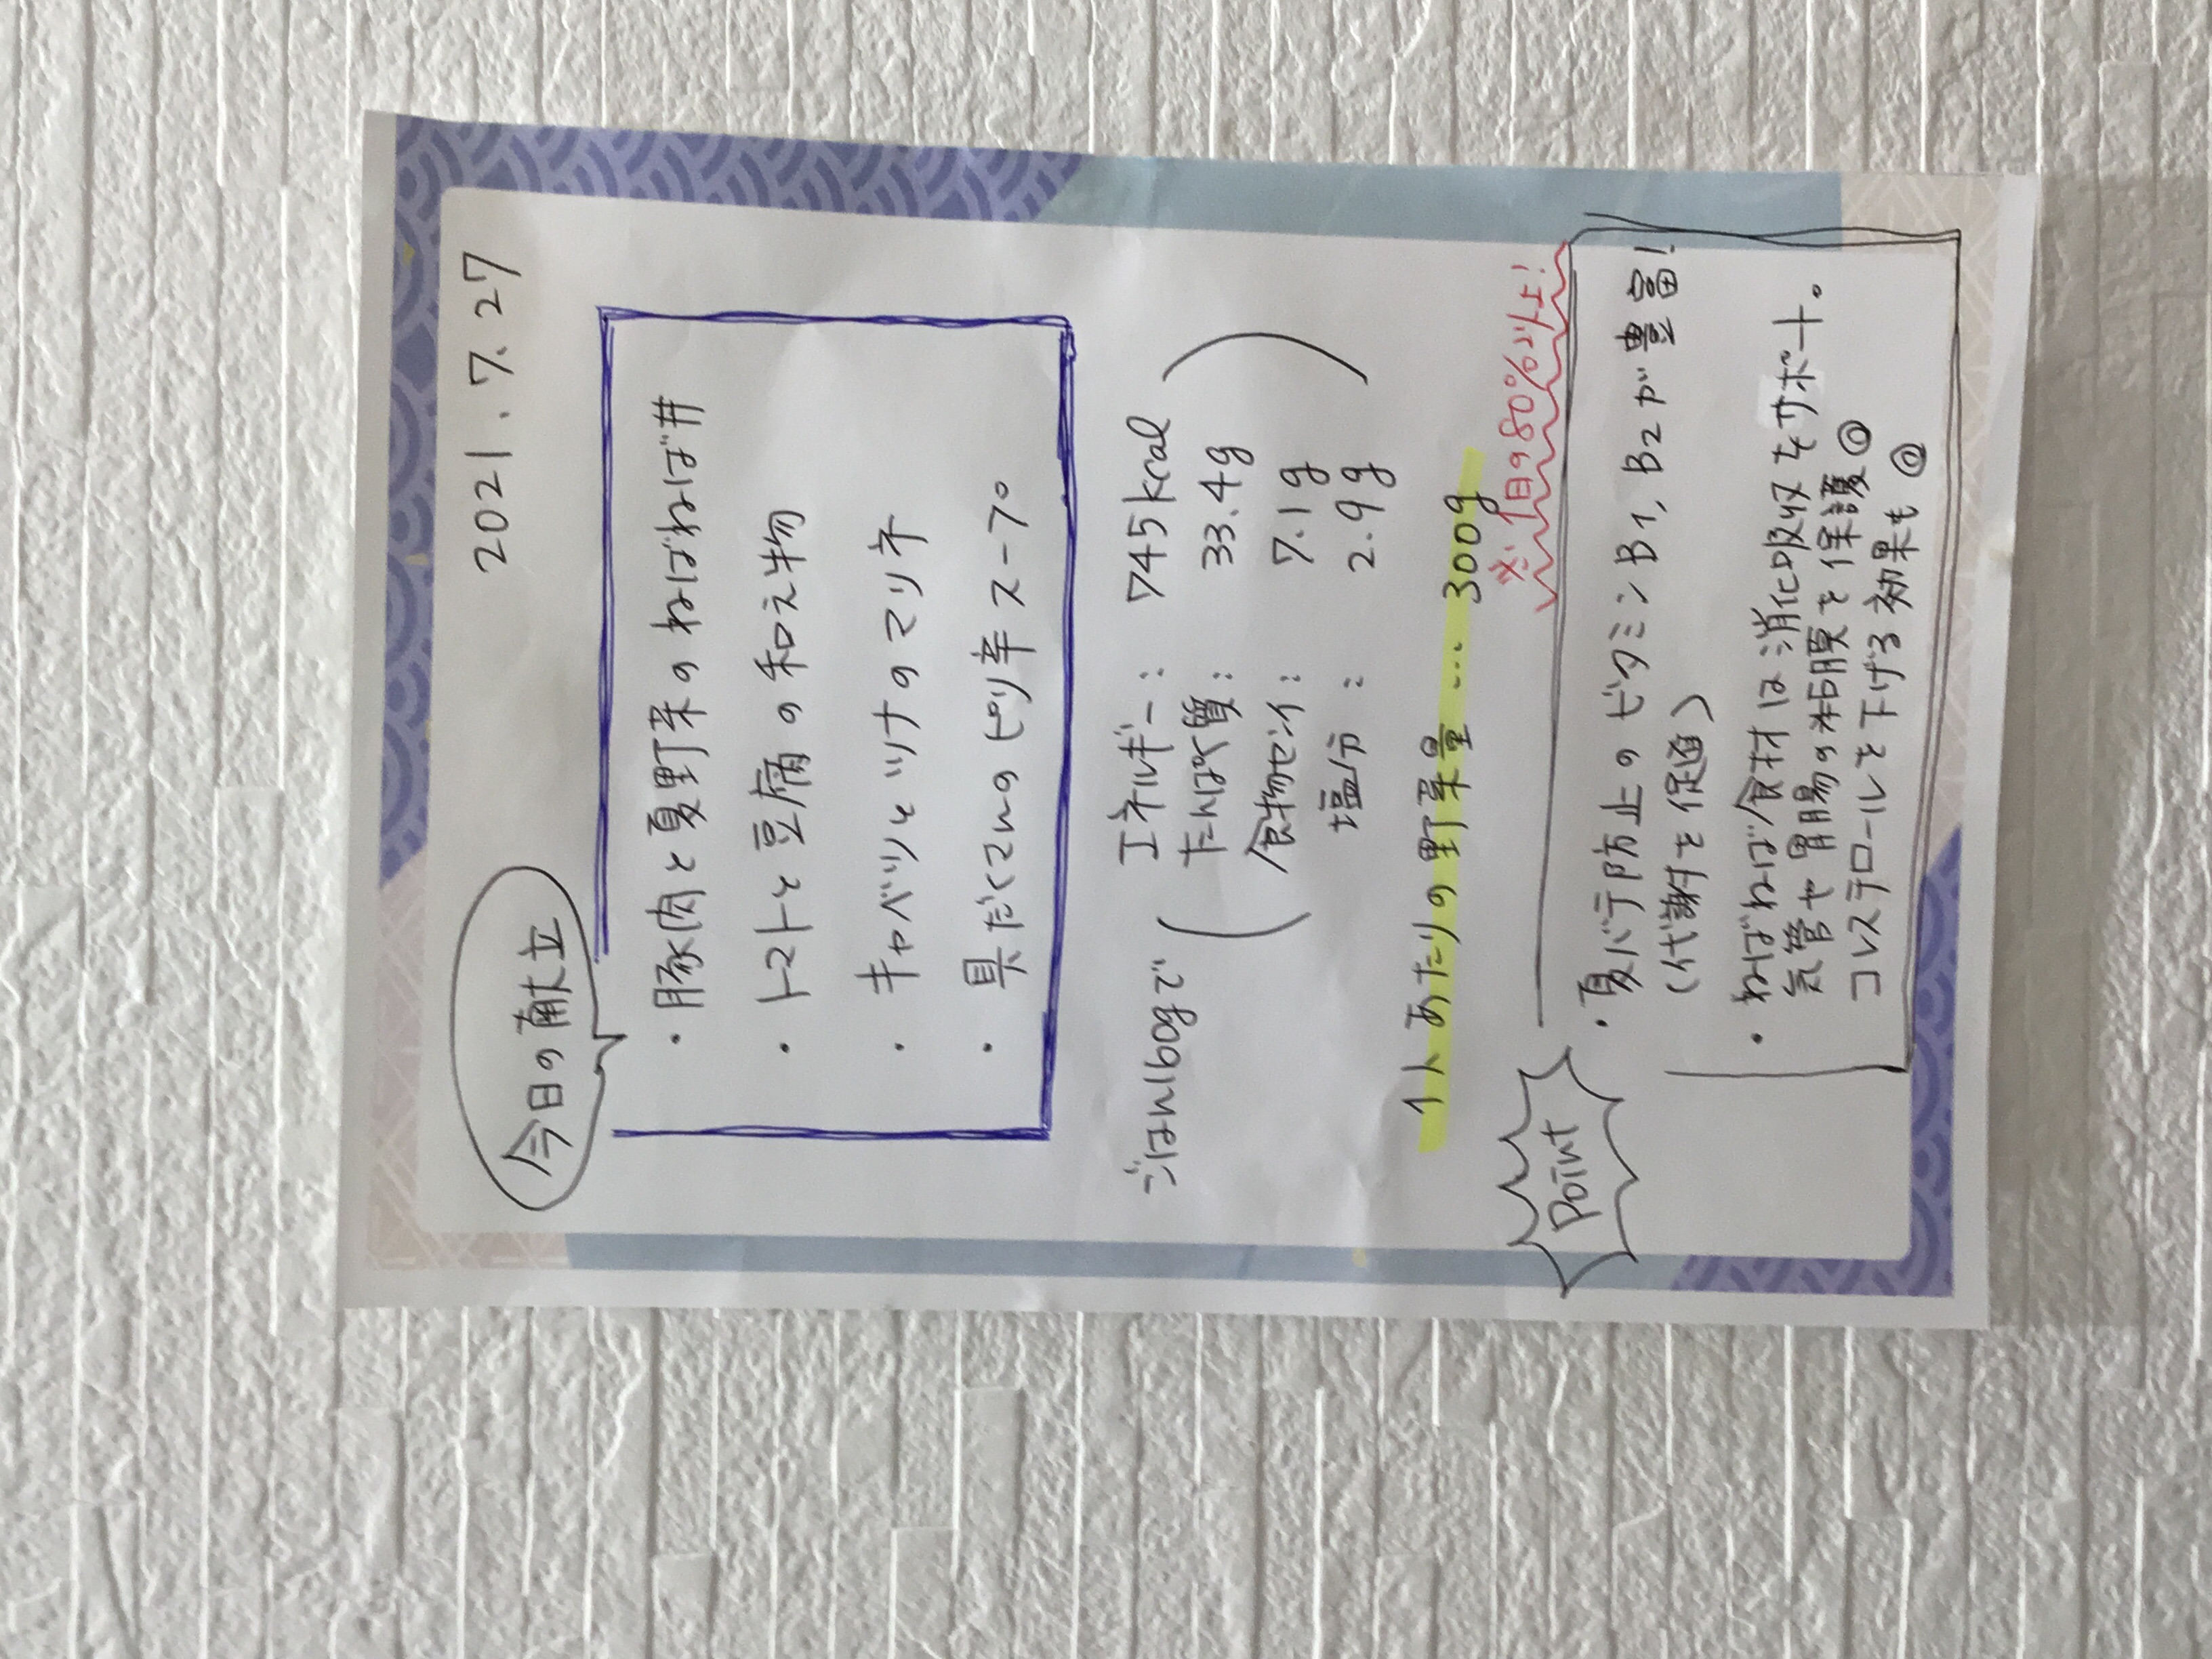 2021.7.27
今日の献立
・豚肉と夏野菜のねばねば丼
・トマトと豆腐の和え物
・キャベツとツナのマリネ
・具だくさんのピリ辛スープ
ごはん160gで
エネルギー: 745kcal
たんぱく質: 33.4g
食物センイ: 7.1g
塩分: 2.9g
1人あたりの野菜量… 300g
※1日の80%以上!
Point
・夏バテ防止のビタミンB1, B2が豊富!
(代謝を促進)
・ねばねば食材は消化吸収をサポート。
気管や胃腸の粘膜を保護◎
コレステロールを下げる効果も◎